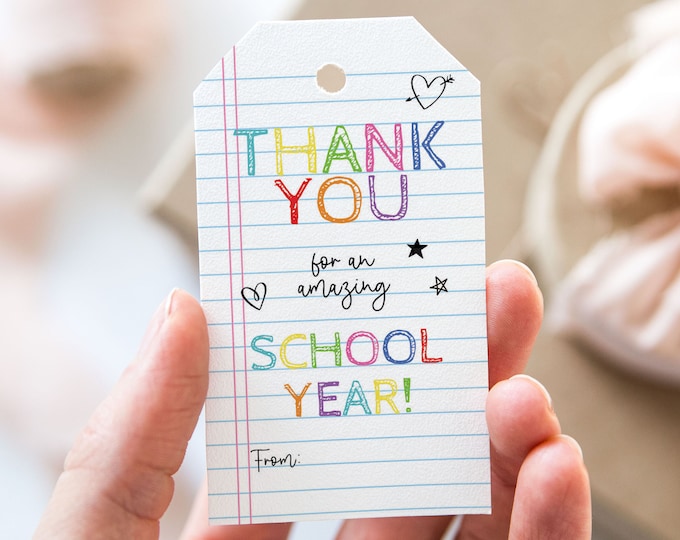 THANK
YOU
for an
amazing
SCHOOL
YEAR!
From: